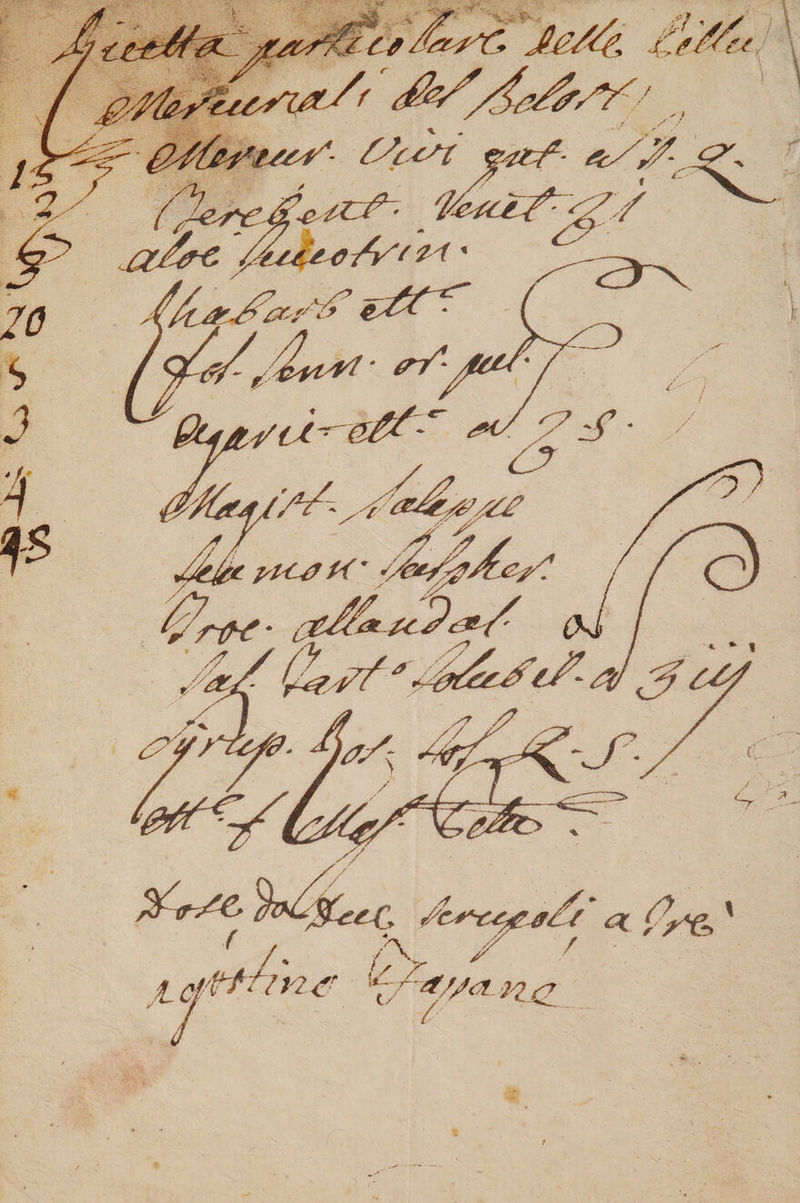 Ricetta particolare delle Pillu
Mercuriali del Belost
15 ℥ Mercur. Vivi
2 Terebent. Venet. ℥i
3 aloe succotrin.
20 Rhabarb ett.ᵉ
5 fol. Senn. or. pul.
3 Agaric. ett.ᵉ a ℥ s.
4 Magist. Jalappe
48 Scamon. Sulpher.
Troc. allandal. a
Sal. Tart.º Solubil. a ʒ iij
Syrup. Ros. Sol. Q. S.
ett.ᵉ f Mas.
Dose da due scrupoli a Tre
Agostino Japane